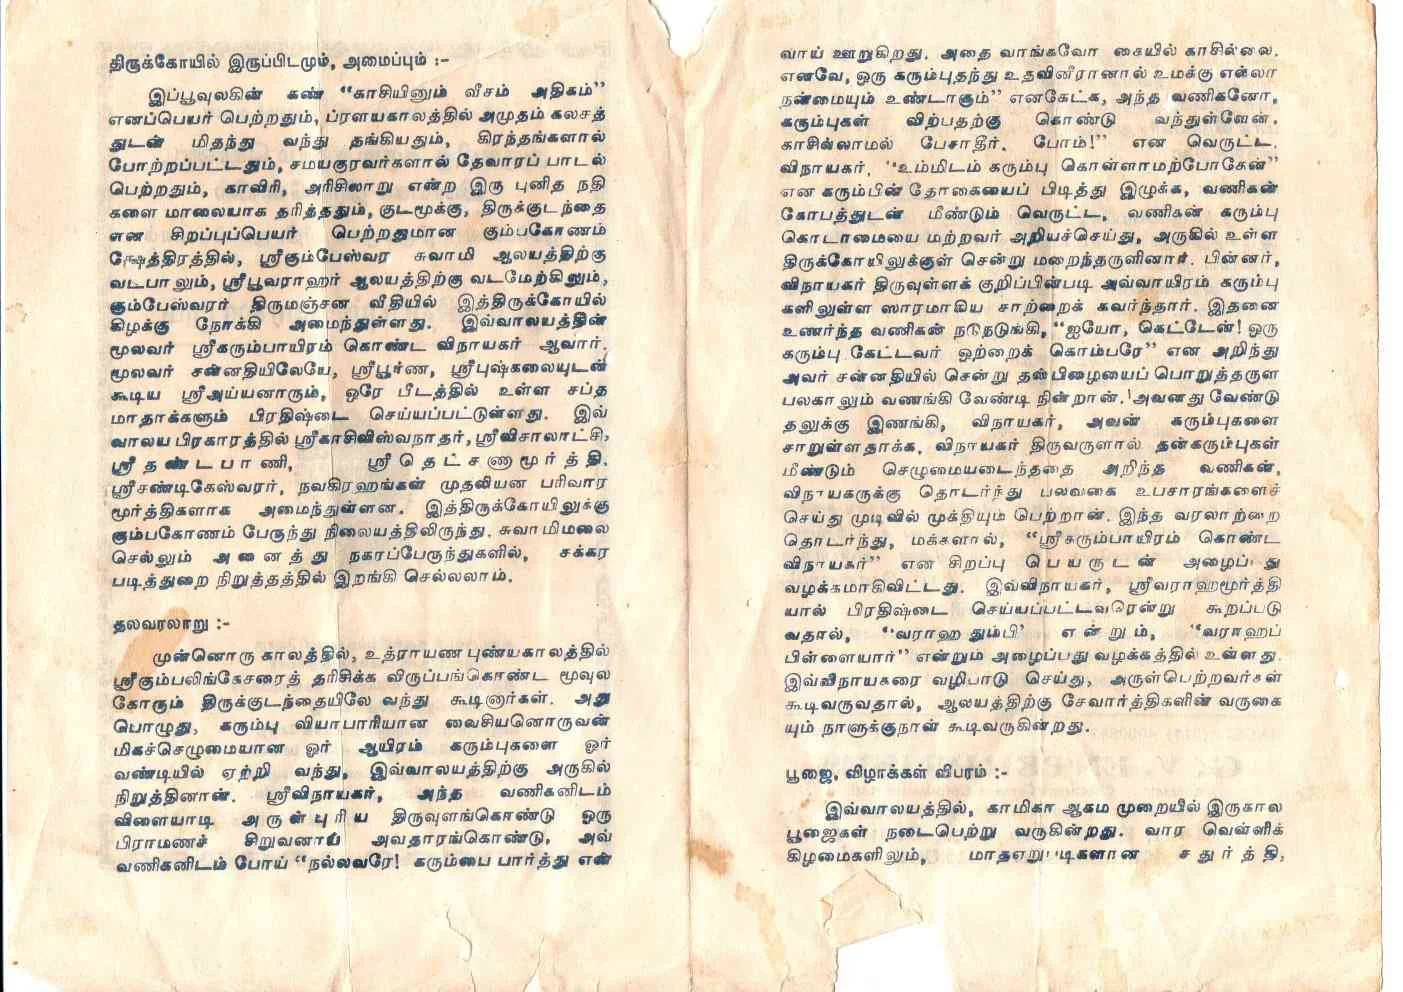 திருக்கோயில் இருப்பிடமும், அமைப்பும் :-
இப்பூவுலகின் கண் “காசியினும் வீசம் அதிகம்”
எனப்பெயர் பெற்றதும், ப்ரளயகாலத்தில் அமுதம் கலசத்
துடன் மிதந்து வந்து தங்கியதும், கிரந்தங்களால்
போற்றப்பட்டதும், சமயகுரவர்களால் தேவாரப் பாடல்
பெற்றதும், காவிரி, அரிசிலாறு என்ற இரு புனித நதி
களை மாலையாக தரித்ததும், குடமூக்கு, திருக்குடந்தை
என சிறப்புப்பெயர் பெற்றதுமான கும்பகோணம்
க்ஷேத்திரத்தில், ஸ்ரீகும்பேஸ்வர சுவாமி ஆலயத்திற்கு
வடபாலும், ஸ்ரீபூவராஹர் ஆலயத்திற்கு வடமேற்கிலும்,
கும்பேஸ்வரர் திருமஞ்சன வீதியில் இத்திருக்கோயில்
கிழக்கு நோக்கி அமைந்துள்ளது. இவ்வாலயத்தின்
மூலவர் ஸ்ரீகரும்பாயிரம் கொண்ட விநாயகர் ஆவார்.
மூலவர் சன்னதியிலேயே, ஸ்ரீபூர்ண, ஸ்ரீபுஷ்கலையுடன்
கூடிய ஸ்ரீஅய்யனாரும், ஒரே பீடத்தில் உள்ள சப்த
மாதாக்களும் பிரதிஷ்டை செய்யப்பட்டுள்ளது. இவ்
வாலய பிரகாரத்தில் ஸ்ரீகாசிவிஸ்வநாதர், ஸ்ரீவிசாலாட்சி,
ஸ்ரீதண்டபாணி, ஸ்ரீதெட்சணாமூர்த்தி,
ஸ்ரீசண்டிகேஸ்வரர், நவகிரஹங்கள் முதலியன பரிவார
மூர்த்திகளாக அமைந்துள்ளன. இத்திருக்கோயிலுக்கு
கும்பகோணம் பேருந்து நிலையத்திலிருந்து, சுவாமிமலை
செல்லும் அனைத்து நகரப்பேருந்துகளில், சக்கர
படித்துறை நிறுத்தத்தில் இறங்கி செல்லலாம்.
தலவரலாறு :-
முன்னொரு காலத்தில், உத்ராயண புண்யகாலத்தில்
ஸ்ரீகும்பலிங்கேசரைத் தரிசிக்க விருப்பங்கொண்ட மூவுல
கோரும் திருக்குடந்தையிலே வந்து கூடினார்கள். அது
பொழுது, கரும்பு வியாபாரியான வைசியனொருவன்
மிகச்செழுமையான ஓர் ஆயிரம் கரும்புகளை ஓர்
வண்டியில் ஏற்றி வந்து, இவ்வாலயத்திற்கு அருகில்
நிறுத்தினான். ஸ்ரீவிநாயகர், அந்த வணிகனிடம்
விளையாடி அருள்புரிய திருவுளங்கொண்டு ஒரு
பிராமணச் சிறுவனாய் அவதாரங்கொண்டு, அவ்
வணிகனிடம் போய் “நல்லவரே! கரும்பை பார்த்து என்
வாய் ஊறுகிறது. அதை வாங்கவோ கையில் காசில்லை.
எனவே, ஒரு கரும்புதந்து உதவினீரானால் உமக்கு எல்லா
நன்மையும் உண்டாகும்” எனகேட்க, அந்த வணிகனோ,
கரும்புகள் விற்பதற்கு கொண்டு வந்துள்ளேன்.
காசில்லாமல் பேசாதீர். போம்!” என வெருட்ட.
விநாயகர், “உம்மிடம் கரும்பு கொள்ளாமற்போகேன்”
என கரும்பின் தோகையைப் பிடித்து இழுக்க, வணிகன்
கோபத்துடன் மீண்டும் வெருட்ட, வணிகன் கரும்பு
கொடாமையை மற்றவர் அறியச்செய்து, அருகில் உள்ள
திருக்கோயிலுக்குள் சென்று மறைந்தருளினார். பின்னர்,
விநாயகர் திருவுள்ளக் குறிப்பின்படி அவ்வாயிரம் கரும்பு
களிலுள்ள ஸாரமாகிய சாற்றைக் கவர்ந்தார். இதனை
உணர்ந்த வணிகன் நடுநடுங்கி, “ஐயோ, கெட்டேன்! ஒரு
கரும்பு கேட்டவர் ஒற்றைக் கொம்பரே” என அறிந்து
அவர் சன்னதியில் சென்று தன்பிழையைப் பொறுத்தருள
பலகாலும் வணங்கி வேண்டி நின்றான். அவனது வேண்டு
தலுக்கு இணங்கி, விநாயகர், அவன் கரும்புகளை
சாறுள்ளதாக்க, விநாயகர் திருவருளால் தன்கரும்புகள்
மீண்டும் செழுமையடைந்ததை அறிந்த வணிகன்,
விநாயகருக்கு தொடர்ந்து பலவகை உபசாரங்களைச்
செய்து முடிவில் முக்தியும் பெற்றான். இந்த வரலாற்றை
தொடர்ந்து, மக்களால், “ஸ்ரீகரும்பாயிரம் கொண்ட
விநாயகர்” என சிறப்பு பெயருடன் அழைப்பது
வழக்கமாகிவிட்டது. இவ்விநாயகர், ஸ்ரீவராஹமூர்த்தி
யால் பிரதிஷ்டை செய்யப்பட்டவரென்று கூறப்படு
வதால், “வராஹ தும்பி” என்றும், “வராஹப்
பிள்ளையார்” என்றும் அழைப்பது வழக்கத்தில் உள்ளது.
இவ்விநாயகரை வழிபாடு செய்து, அருள்பெற்றவர்கள்
கூடிவருவதால், ஆலயத்திற்கு சேவார்த்திகளின் வருகை
யும் நாளுக்குநாள் கூடிவருகின்றது.
பூஜை, விழாக்கள் விபரம் :-
இவ்வாலயத்தில், காமிகா ஆகம முறையில் இருகால
பூஜைகள் நடைபெற்று வருகின்றது. வார வெள்ளிக்
கிழமைகளிலும், சதுர்த்தி,